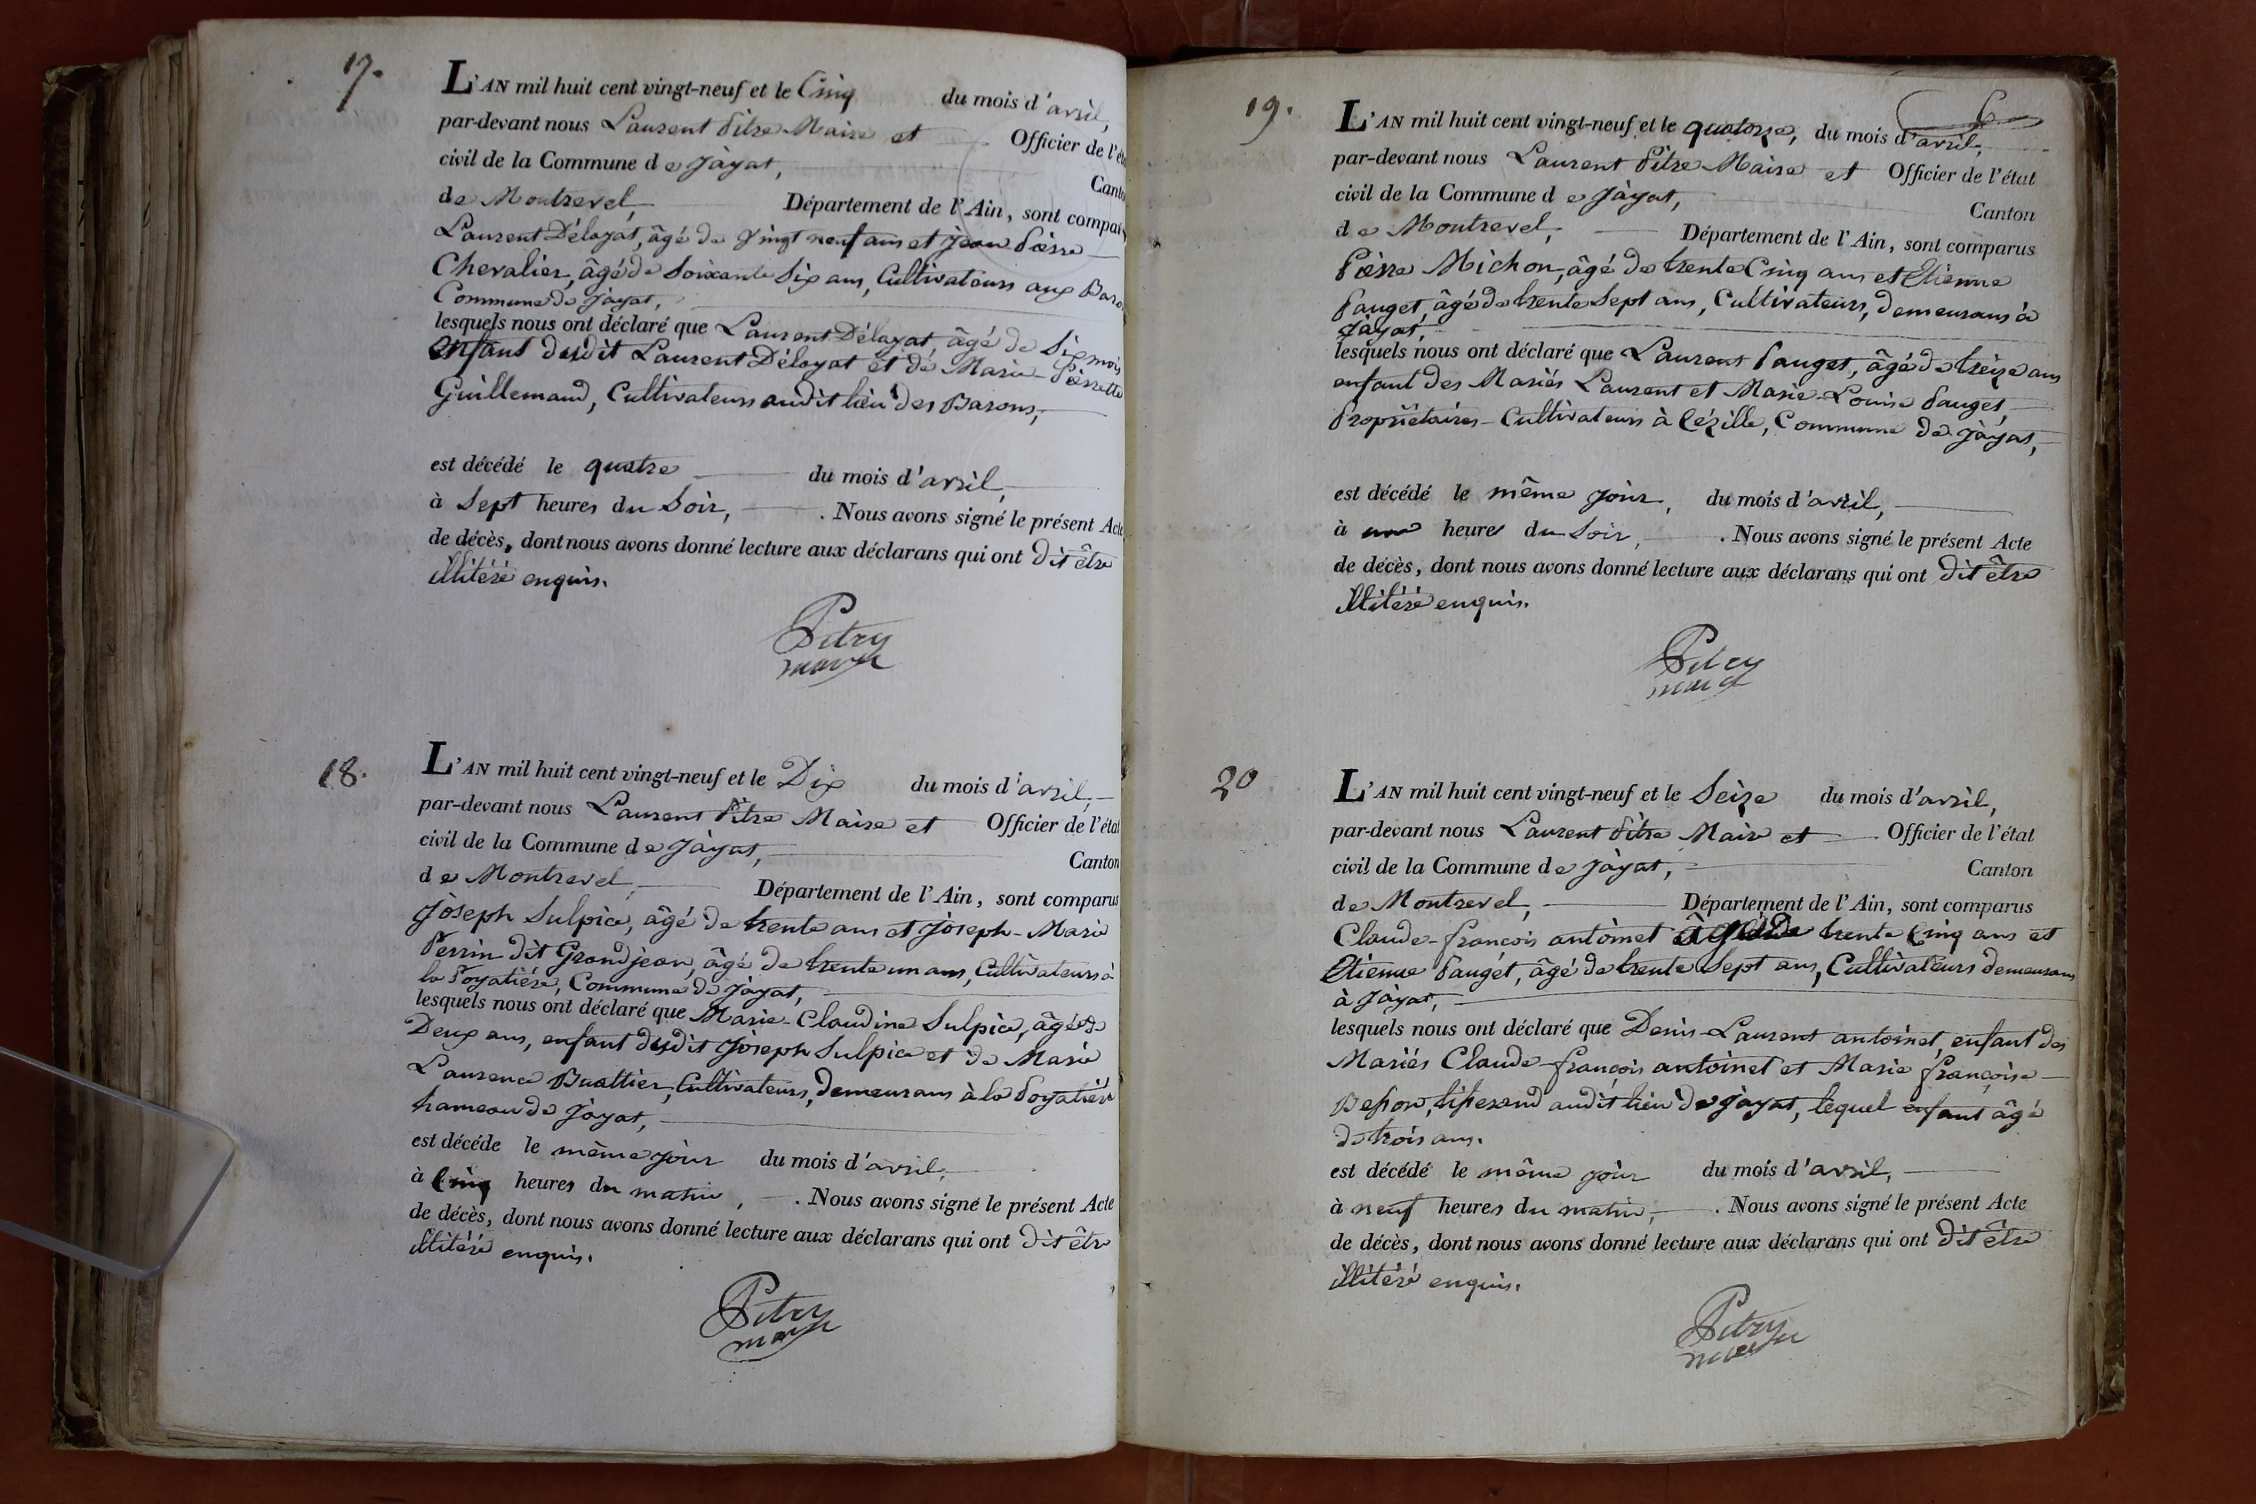 17.
L'AN mil huit cent vingt-neuf et le Cinq du mois d'avril,
par-devant nous Laurent Pitre Maire et Officier de l'ét
civil de la Commune de Jàyat, Cant
de Montrevel, Département de l'Ain, sont compar
Laurent Délayat, âgé de Vingt neuf ans et jean Pierre
Chevalier, âgé de Soixante Six ans, Cultivateurs aux Baro
Commune de Jayat,
lesquels nous ont déclaré que Laurent Délayat, âgé de Six mois
enfant dudit Laurent Délayat et de Marie-Pierrette
Guillemaud, Cultivateurs audit lieu des Barons,
est décédé le quatre du mois d'avril,
à Sept heures du Soir, . Nous avons signé le présent Acte
de décès, dont nous avons donné lecture aux déclarans qui ont dit être
illitéré enquis.
Pitry
maire
18.
L'AN mil huit cent vingt-neuf et le Dix du mois d'avril,
par-devant nous Laurent Pitre Maire et Officier de l'état
civil de la Commune de Jàyat, Canton
de Montrevel, Département de l'Ain, sont comparus
Jòseph Sulpice, âgé de trente ans et Jòseph-Marie
Perrin dit Grandjean, âgé de trente un ans, Cultivateurs à
la Poyatière, Commune de Jàyat,
lesquels nous ont déclaré que Marie-Claudine Sulpice, âgée de
Deux ans, enfant dudit Jòseph Sulpice et de Marie
Laurence Buattier, Cultivateurs, demeurans à la Poyatière
hameau de Jàyat,
est décéde le même jour du mois d'avril,
à Cinq heures du matin, . Nous avons signé le présent Acte
de décès, dont nous avons donné lecture aux déclarans qui ont dit être
illitéré enquis.
Pitry
maire
6
19.
L'AN mil huit cent vingt-neuf et le quatorze, du mois d'avril,
par-devant nous Laurent Pitre Maire et Officier de l'état
civil de la Commune de Jàyat, Canton
de Montrevel, Département de l'Ain, sont comparus
Pierre Michon, âgé de trente Cinq ans et Etienne
Pauget, âgé de trente Sept ans, Cultivateurs, demeurans à
Jàyat,
lesquels nous ont déclaré que Laurent Pauget, âgé de treize ans
enfant des Mariés Laurent et Marie-Louise Pauget,
Propriétaires-Cultivateurs à Cézille, Commune de Jàyat,
est décédé le même jour, du mois d'avril,
à une heure du Soir, . Nous avons signé le présent Acte
de décès, dont nous avons donné lecture aux déclarans qui ont dit être
illitéré enquis.
Pitry
maire
20
L'AN mil huit cent vingt-neuf et le Seize du mois d'avril,
par-devant nous Laurent Pitre Maire et Officier de l'état
civil de la Commune de Jàyat, Canton
de Montrevel, Département de l'Ain, sont comparus
Claude-françois antoinet âgé de trente Cinq ans et
Etienne Pauget, âgé de trente Sept ans, Cultivateurs demeurans
à Jàyat,
lesquels nous ont déclaré que Denis-Laurent antoinet, enfant des
Mariés Claude-françois antoinet et Marie françoise
Besson, tisserand audit lieu de Jàyat, lequel enfant âgé
de trois ans.
est décédé le même jour du mois d'avril,
à neuf heures du matin, . Nous avons signé le présent Acte
de décès, dont nous avons donné lecture aux déclarans qui ont dit être
illitéré enquis.
Pitry
maire